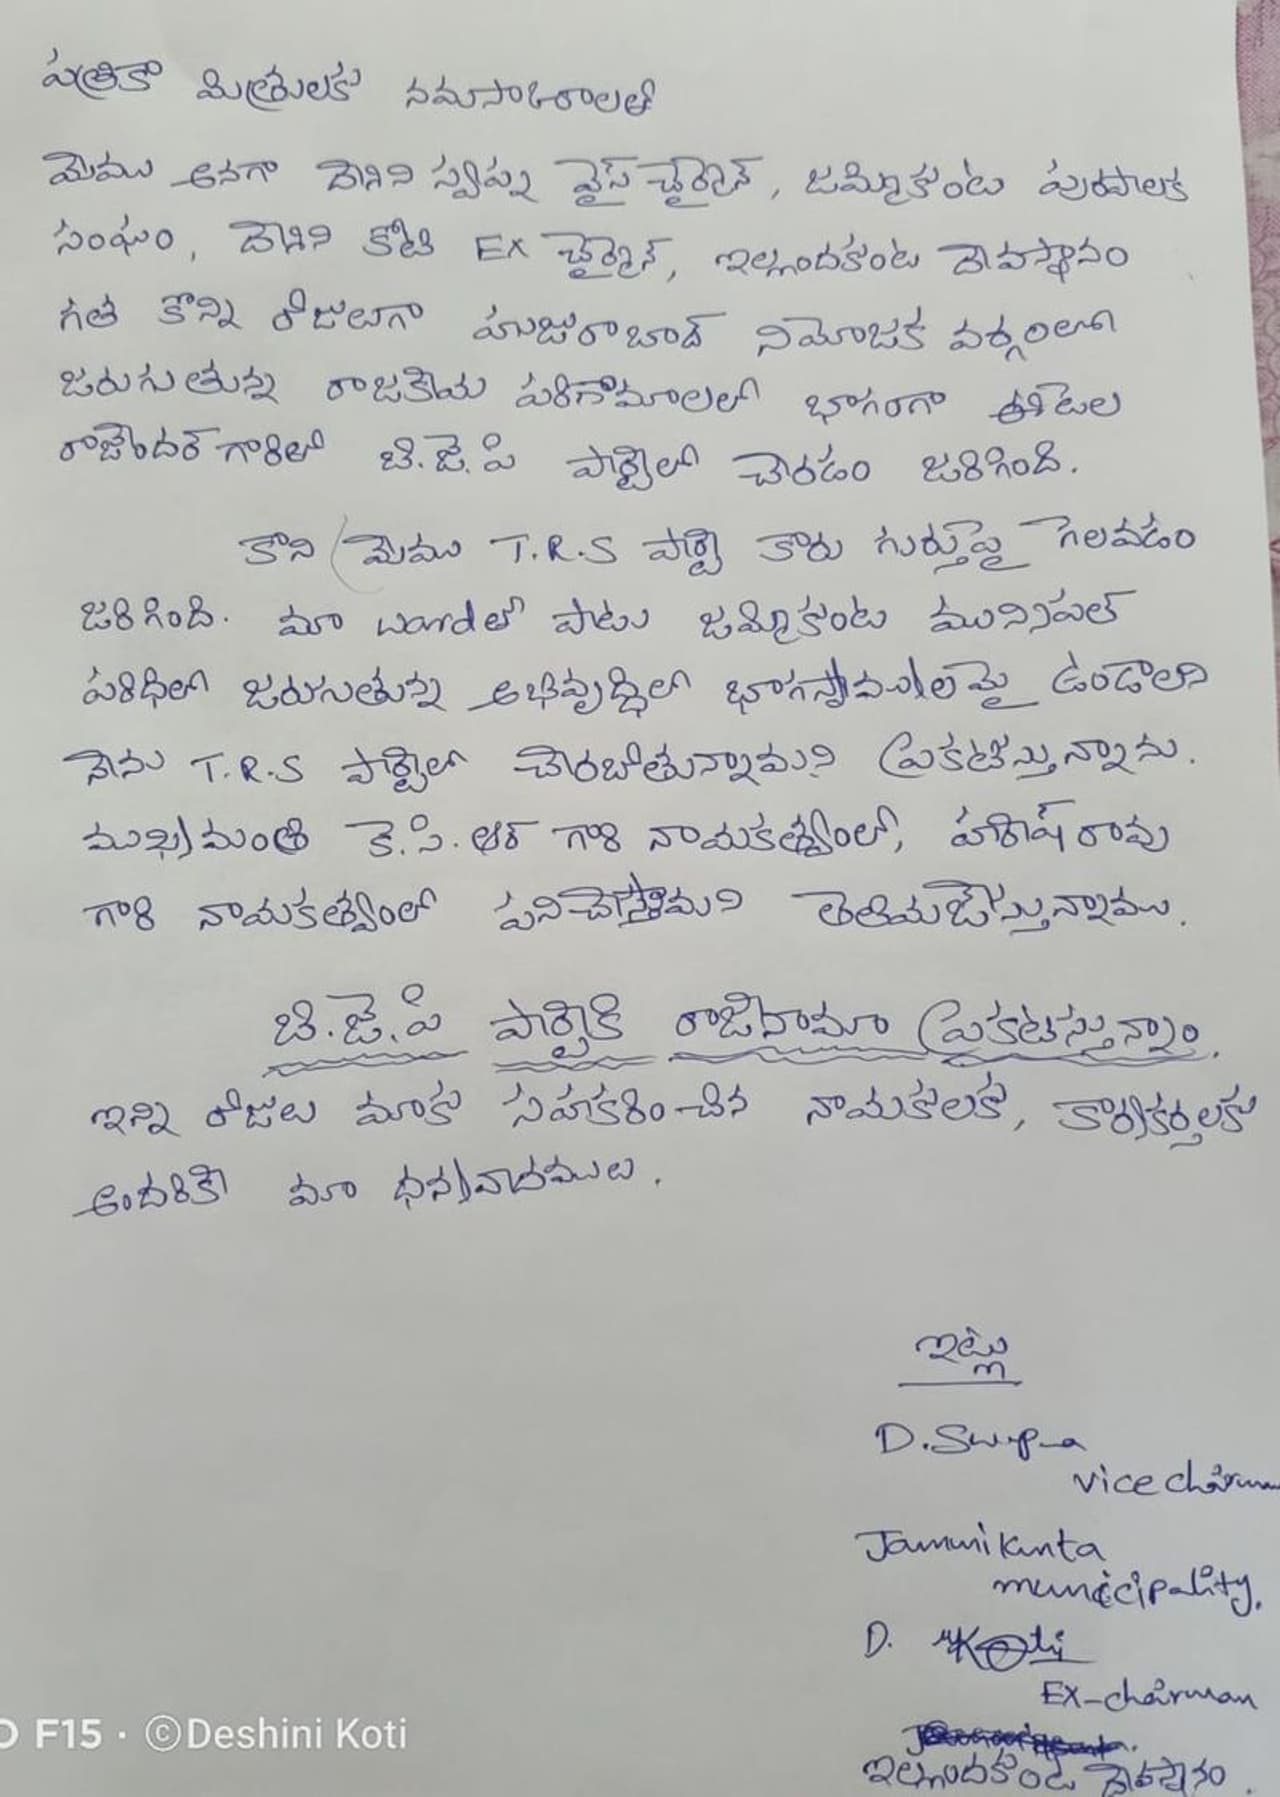 పత్రికా మిత్రులకు నమస్కారాలతో
మేము అనగా దేశిని స్వప్న వైస్ చైర్మైన్, జమ్మికుంట పురపాలక
సంఘం, దేశిని కోటి EX చైర్మైన్, ఇల్లందకుంట దేవస్థానం
గత కొన్ని రోజులుగా హుజురాబాద్ నియోజక వర్గంలో
జరుగుతున్న రాజకీయ పరిణామాలలో భాగంగా ఈటెల
రాజేందర్ గారితో బి.జె.పి పార్టీలో చేరడం జరిగింది.
కాని మేము T.R.S పార్టీ కారు గుర్తుపై గెలవడం
జరిగింది. మా ward తో పాటు జమ్మికుంట మునిసిపల్
పరిధిలో జరుగుతున్న అభివృద్ధిలో భాగస్వామ్యులమై ఉండాలని
నేను T.R.S పార్టీలో చేరబోతున్నామని ప్రకటిస్తున్నాను.
ముఖ్యమంత్రి కె.సి.ఆర్ గారి నాయకత్వంలో, హరీష్ రావు
గారి నాయకత్వంలో పనిచేస్తామని తెలియజేస్తున్నాము.
బి.జె.పి పార్టీకి రాజీనామా ప్రకటిస్తున్నాం.
ఇన్ని రోజులు మాకు సహకరించిన నాయకులకు, కార్యకర్తలకు
అందరికీ మా ధన్యవాదములు.
ఇట్లు
D. Swapna
vice chairman
Jammikunta
municipality.
D. Koti
EX-chairman
ఇల్లందకుంట దేవస్థానం.
F15 · ©Deshini Koti